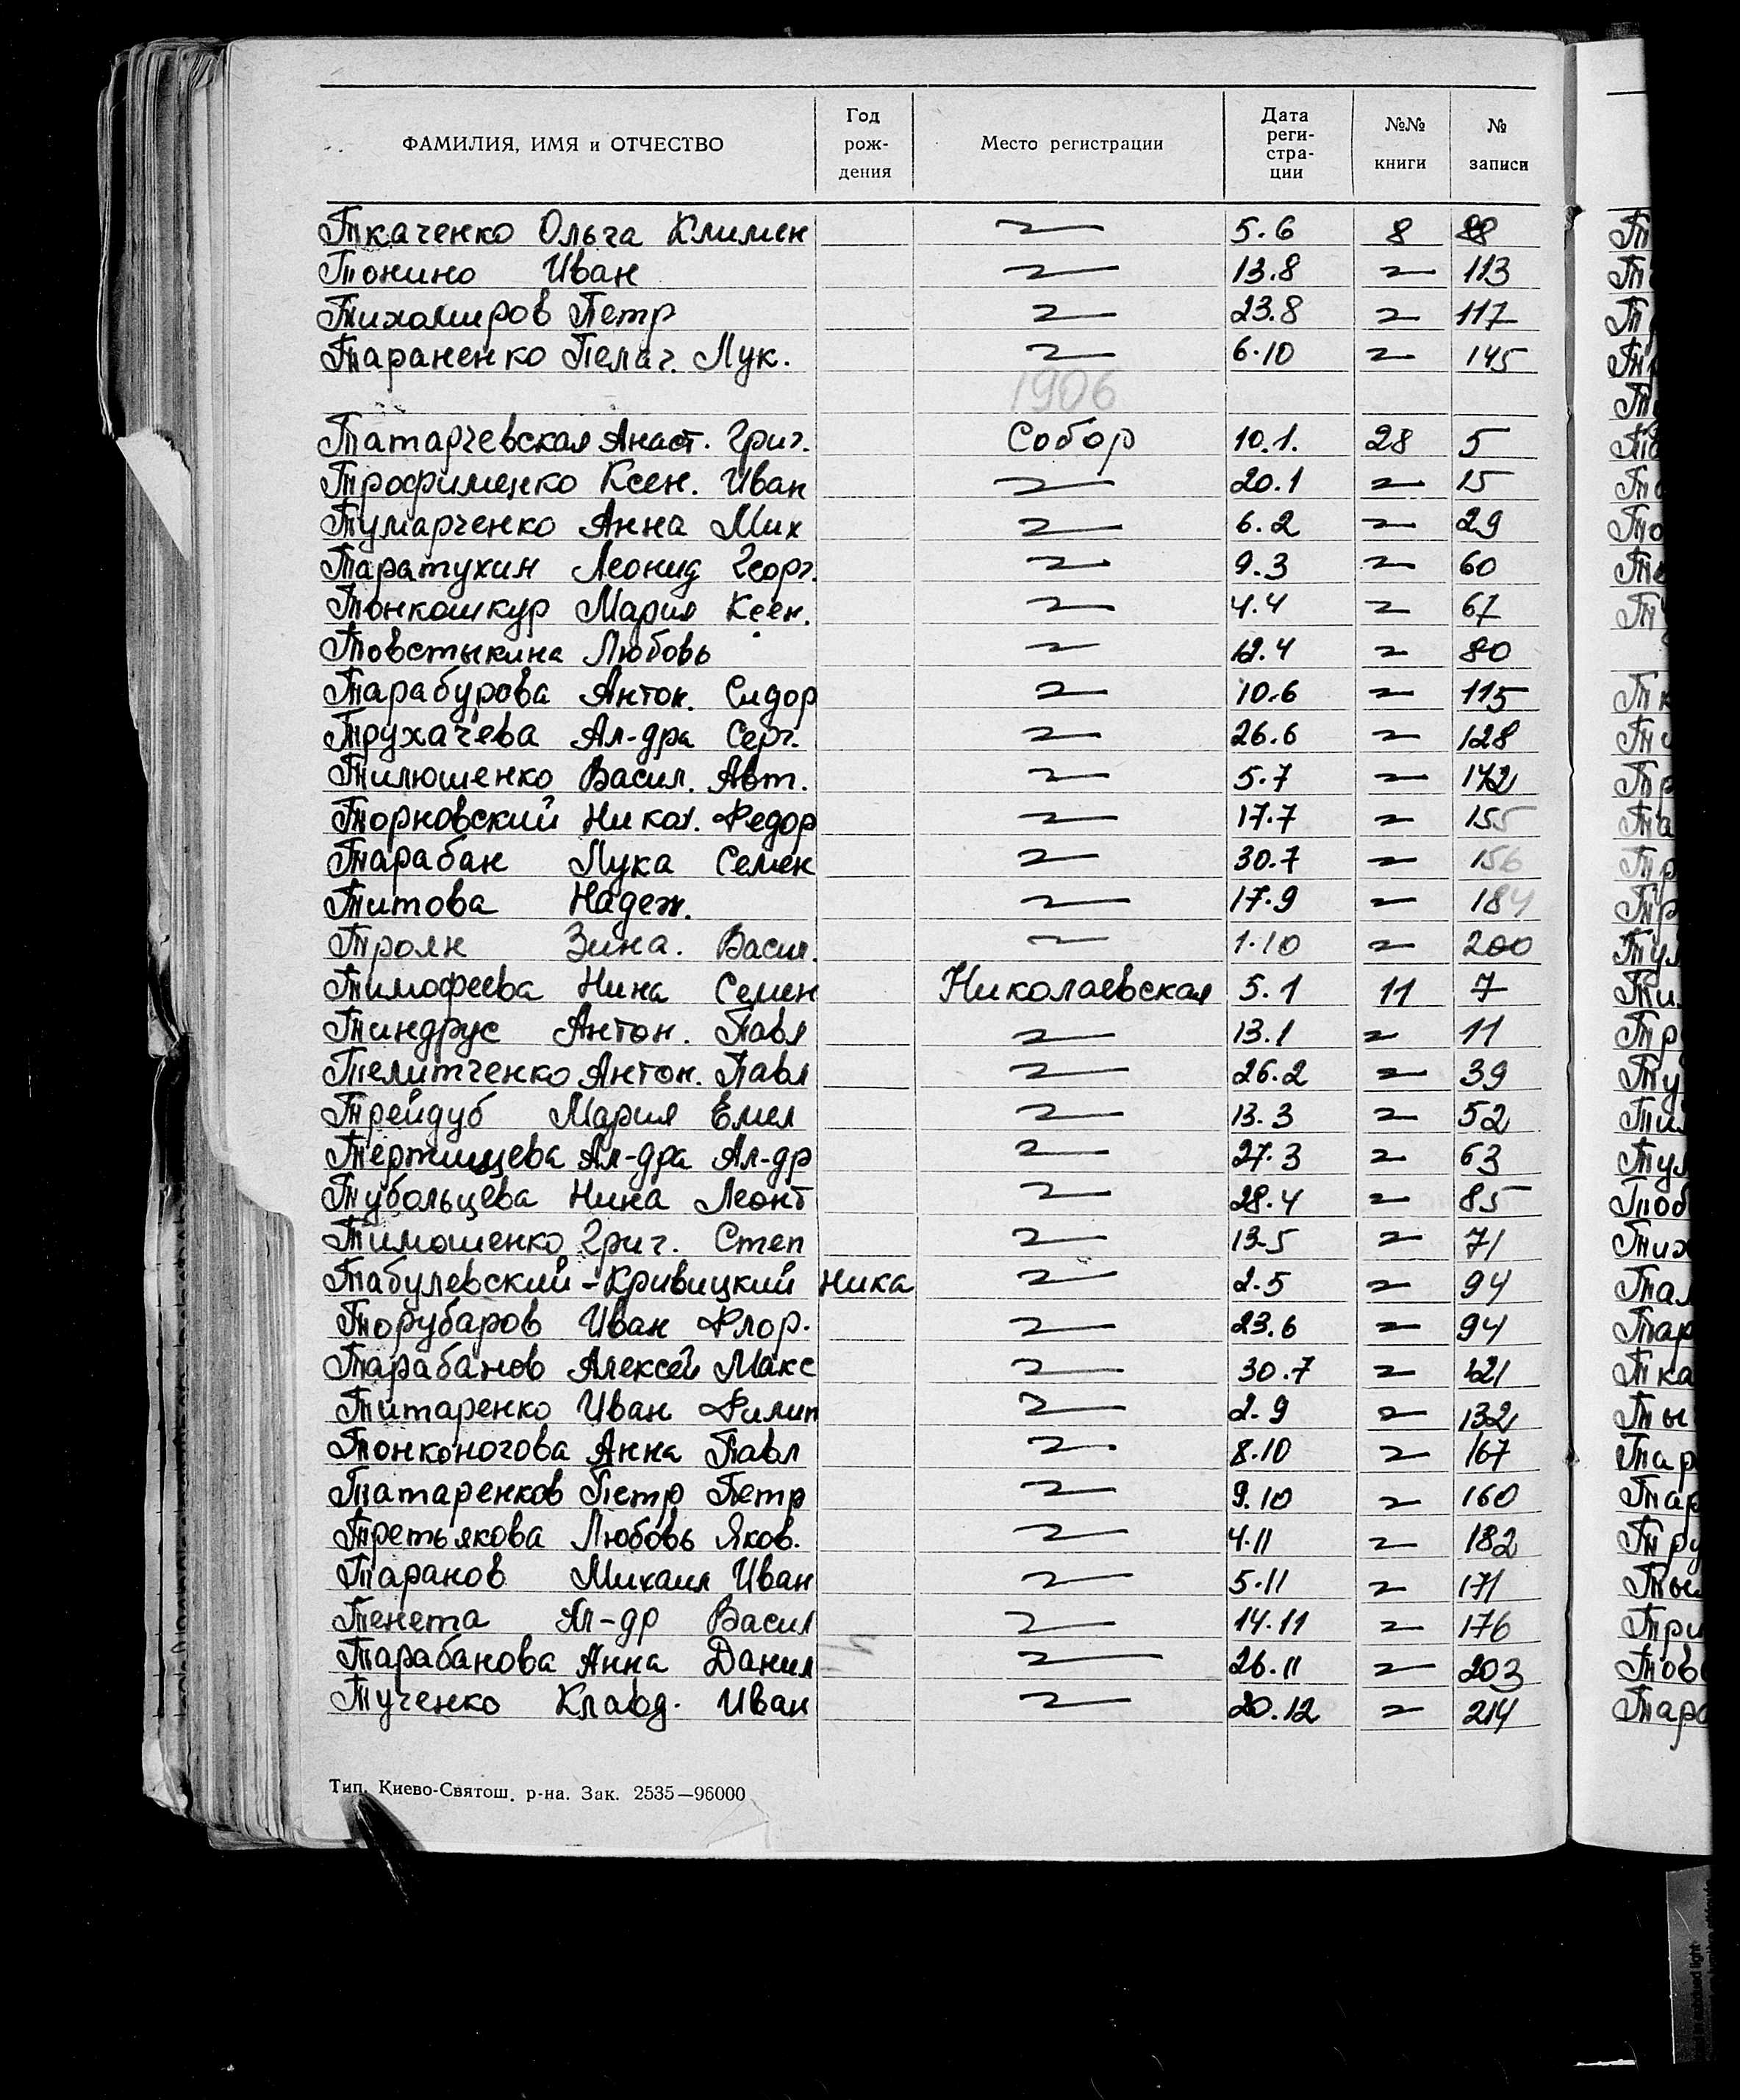 ФАМИЛИЯ, ИМЯ и ОТЧЕСТВО | Год рождения | Место регистрации | Дата регистрации | №№ книги | № записи
Ткаченко Ольга Климен 〃 5.6 8 88
Тонино Иван 〃 13.8 〃 113
Тихомиров Петр 〃 23.8 〃 117
Тараненко Пелаг. Лук. 〃 6.10 〃 145
1906
Татарчевская Анаст. Григ. Собор 10.1. 28 5
Трофименко Ксен. Иван 〃 20.1 〃 15
Тумарченко Анна Мих 〃 6.2 〃 29
Таратухин Леонид Георг. 〃 9.3 〃 60
Тонкошкур Мария Ксен. 〃 4.4 〃 67
Товстыкина Любовь 〃 12.4 〃 80
Тарабурова Антон. Сидор 〃 10.6 〃 115
Трухачева Ал-дра Серг. 〃 26.6 〃 128
Тилюшенко Васил. Авт. 〃 5.7 〃 142
Торновский Никол. Федор 〃 17.7 〃 155
Тарабан Лука Семен 〃 30.7 〃 156
Титова Надеж. 〃 17.9 〃 184
Троян Зина. Васил. 〃 1.10 〃 200
Тимофеева Нина Семен Николаевская 5.1 11 7
Тиндрус Антон. Павл 〃 13.1 〃 11
Телитченко Антон. Павл 〃 26.2 〃 39
Трейдуб Мария Емел 〃 13.3 〃 52
Тертищева Ал-дра Ал-др 〃 27.3 〃 63
Тубольцева Нина Леонт 〃 28.4 〃 85
Тимошенко Григ. Степ 〃 13.5 〃 71
Табулевский-Кривицкий Ника 〃 2.5 〃 94
Торубаров Иван Флор. 〃 23.6 〃 94
Тарабанов Алексей Макс 〃 30.7 〃 121
Титаренко Иван Филип 〃 2.9 〃 132
Тонконогова Анна Павл 〃 8.10 〃 167
Татаренков Петр Петр 〃 9.10 〃 160
Третьякова Любовь Яков. 〃 4.11 〃 182
Таранов Михаил Иван 〃 5.11 〃 171
Тенета Ал-др Васил 〃 14.11 〃 176
Тарабанова Анна Данил 〃 26.11 〃 203
Тученко Клавд. Иван 〃 20.12 〃 214
Тип. Киево-Святош. р-на. Зак. 2535—96000